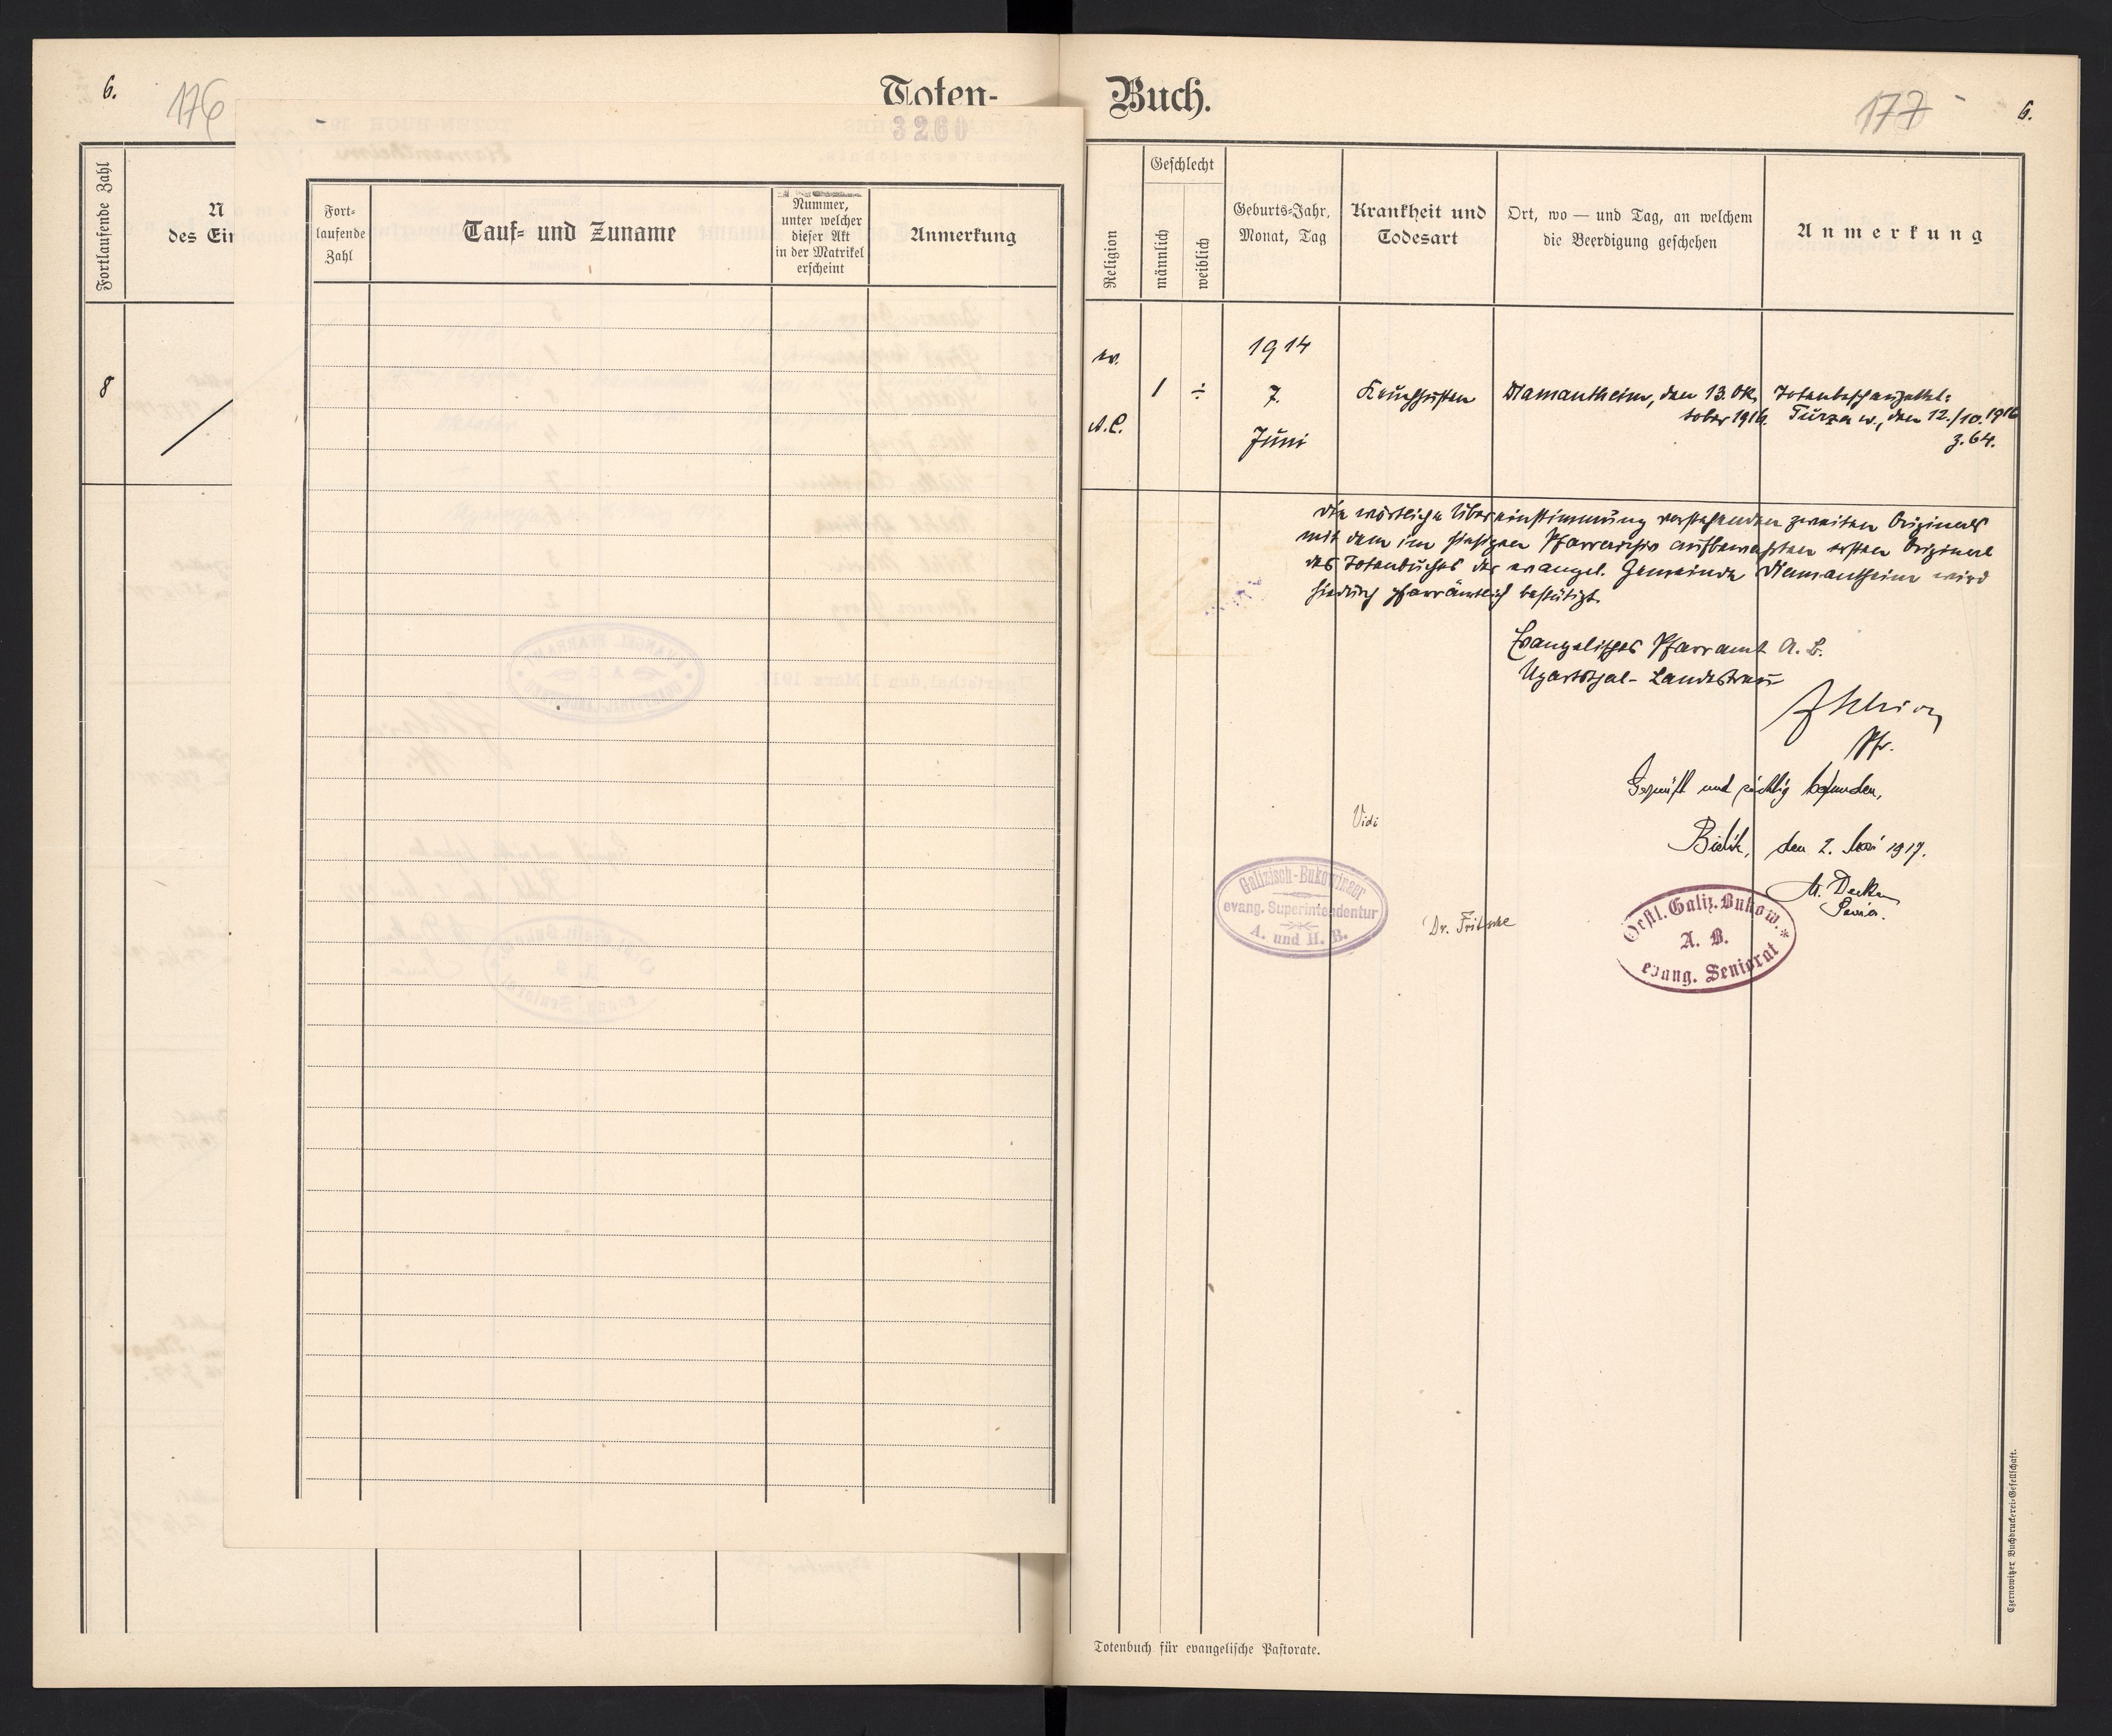 6.
176
Toten-
3260
Fortlaufende Zahl
N
des Ein
8
Fort-
laufende
Zahl
Tauf- und Zuname
Nummer,
unter welcher
dieser Akt
in der Matrikel
erscheint
Anmerkung
Buch.
177
6.
Religion
Geschlecht
männlich
weiblich
Geburts-Jahr,
Monat, Tag
Krankheit und
Todesart
Ort, wo — und Tag, an welchem
die Beerdigung geschehen
Anmerkung
ev.
A.C.
1
÷
1914
7.
Juni
Keuchhusten
Diamantheim, den 13. Ok-
tober 1916.
Totenbeschauzettel:
Turza w., den 12./10. 1916
Z. 64.
Die wörtliche Übereinstimmung vorstehenden zweiten Originals
mit dem im hiesigen Pfarrarchiv aufbewahrten ersten Original
des Totenbuches der evangel. Gemeinde Diamantheim wird
hiedurch pfarrämtlich bestätigt.
Evangelisches Pfarramt A. B.
Ugartsthal-Landestreu
Pfr.
Geprüft und richtig befunden,
Vidi
den 2. Mai 1917.
Galizisch-Bukowinaer
evang. Superintendentur
A. und H. B.
Dr. Fritsche
Oestl. Galiz. Bukow.
A. B.
evang. Seniorat
Senior.
Totenbuch für evangelische Pastorate.
Czernowitzer Buchdruckerei-Gesellschaft.